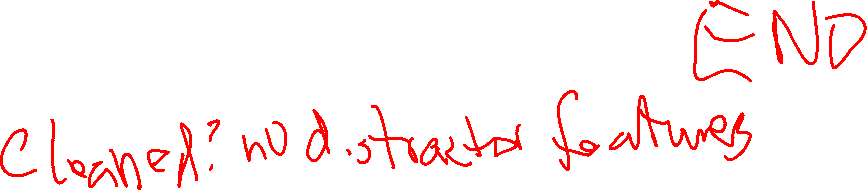 END
Cleaned? no distractor features